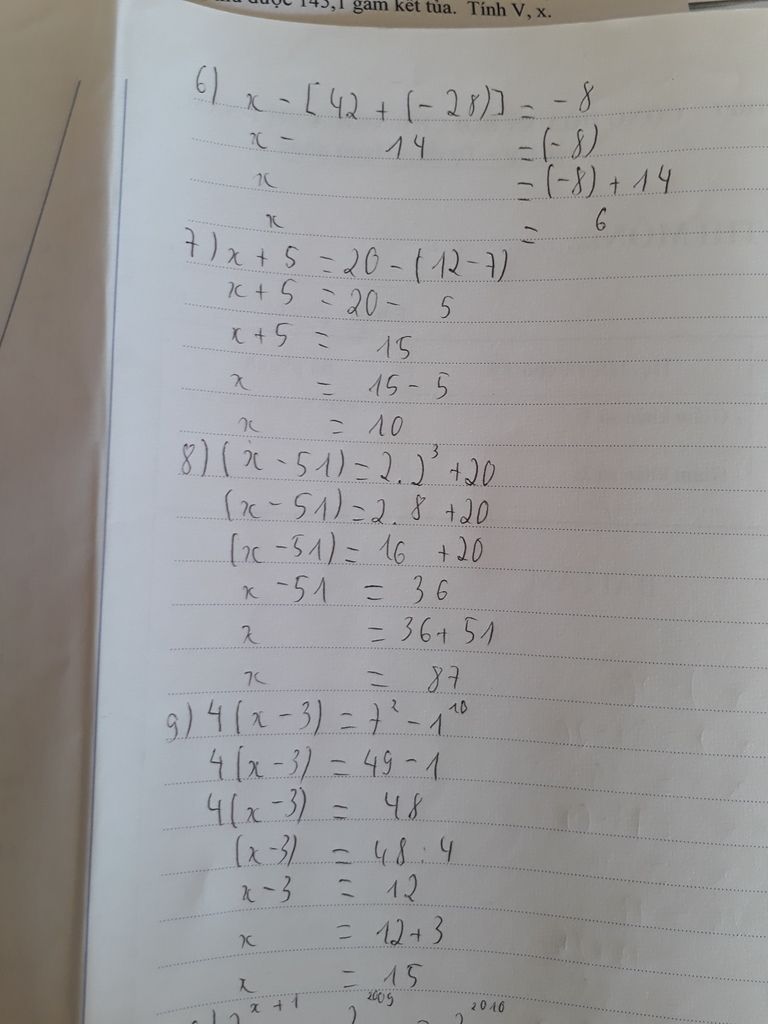 được 145,1 gam kết tủa. Tính V, x.
6) x - [42 + (-28)] = -8
x - 14 = (-8)
x = (-8) + 14
x = 6
7) x + 5 = 20 - (12-7)
x + 5 = 20 - 5
x + 5 = 15
x = 15 - 5
x = 10
8) (x - 51) = 2.2³ + 20
(x - 51) = 2. 8 + 20
(x - 51) = 16 + 20
x - 51 = 36
x = 36 + 51
x = 87
9) 4(x - 3) = 7² - 1¹⁰
4(x - 3) = 49 - 1
4(x - 3) = 48
(x - 3) = 48 : 4
x - 3 = 12
x = 12 + 3
x = 15